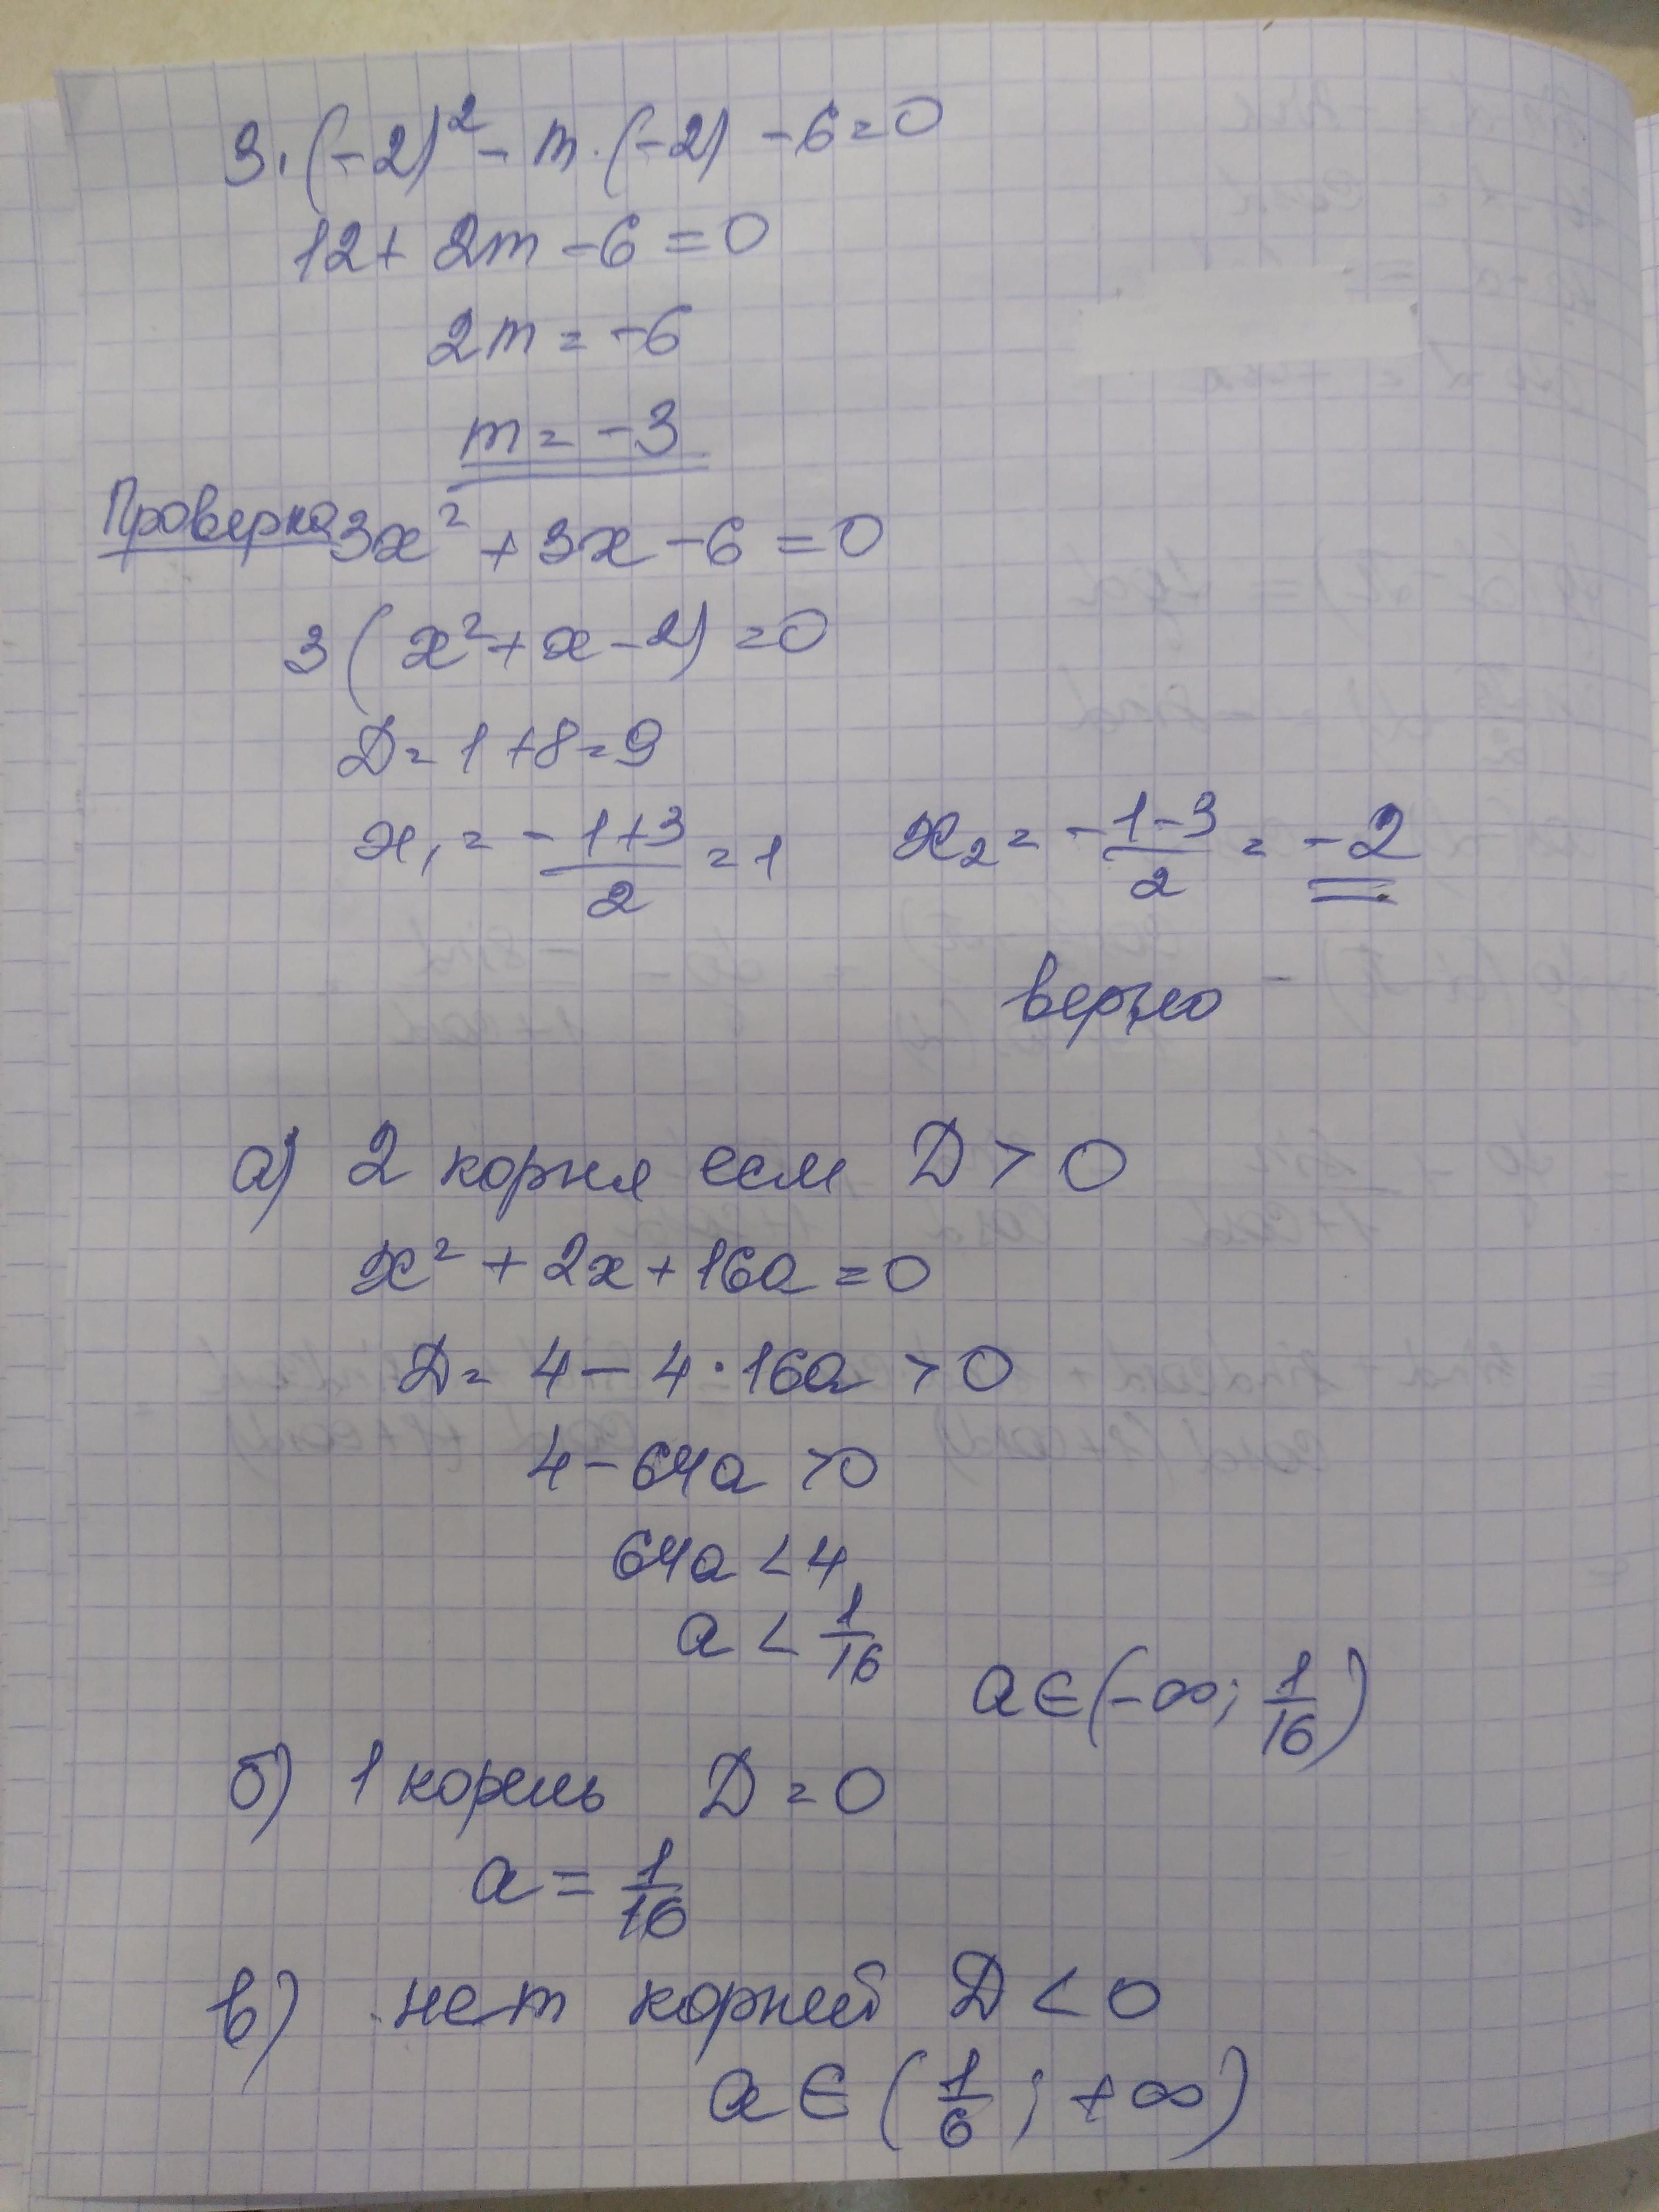 3·(-2)² - m·(-2) - 6 = 0
12 + 2m - 6 = 0
2m = -6
m = -3
Проверка 3x² + 3x - 6 = 0
3(x² + x - 2) = 0
D = 1 + 8 = 9
x₁ = -1+3/2 = 1 x₂ = -1-3/2 = -2
верно
а) 2 корня если D > 0
x² + 2x + 16a = 0
D = 4 - 4·16a > 0
4 - 64a > 0
64a < 4
a < 1/16
a ∈ (-∞; 1/16)
б) 1 корень D = 0
a = 1/16
в) нет корней D < 0
a ∈ (1/6; +∞)